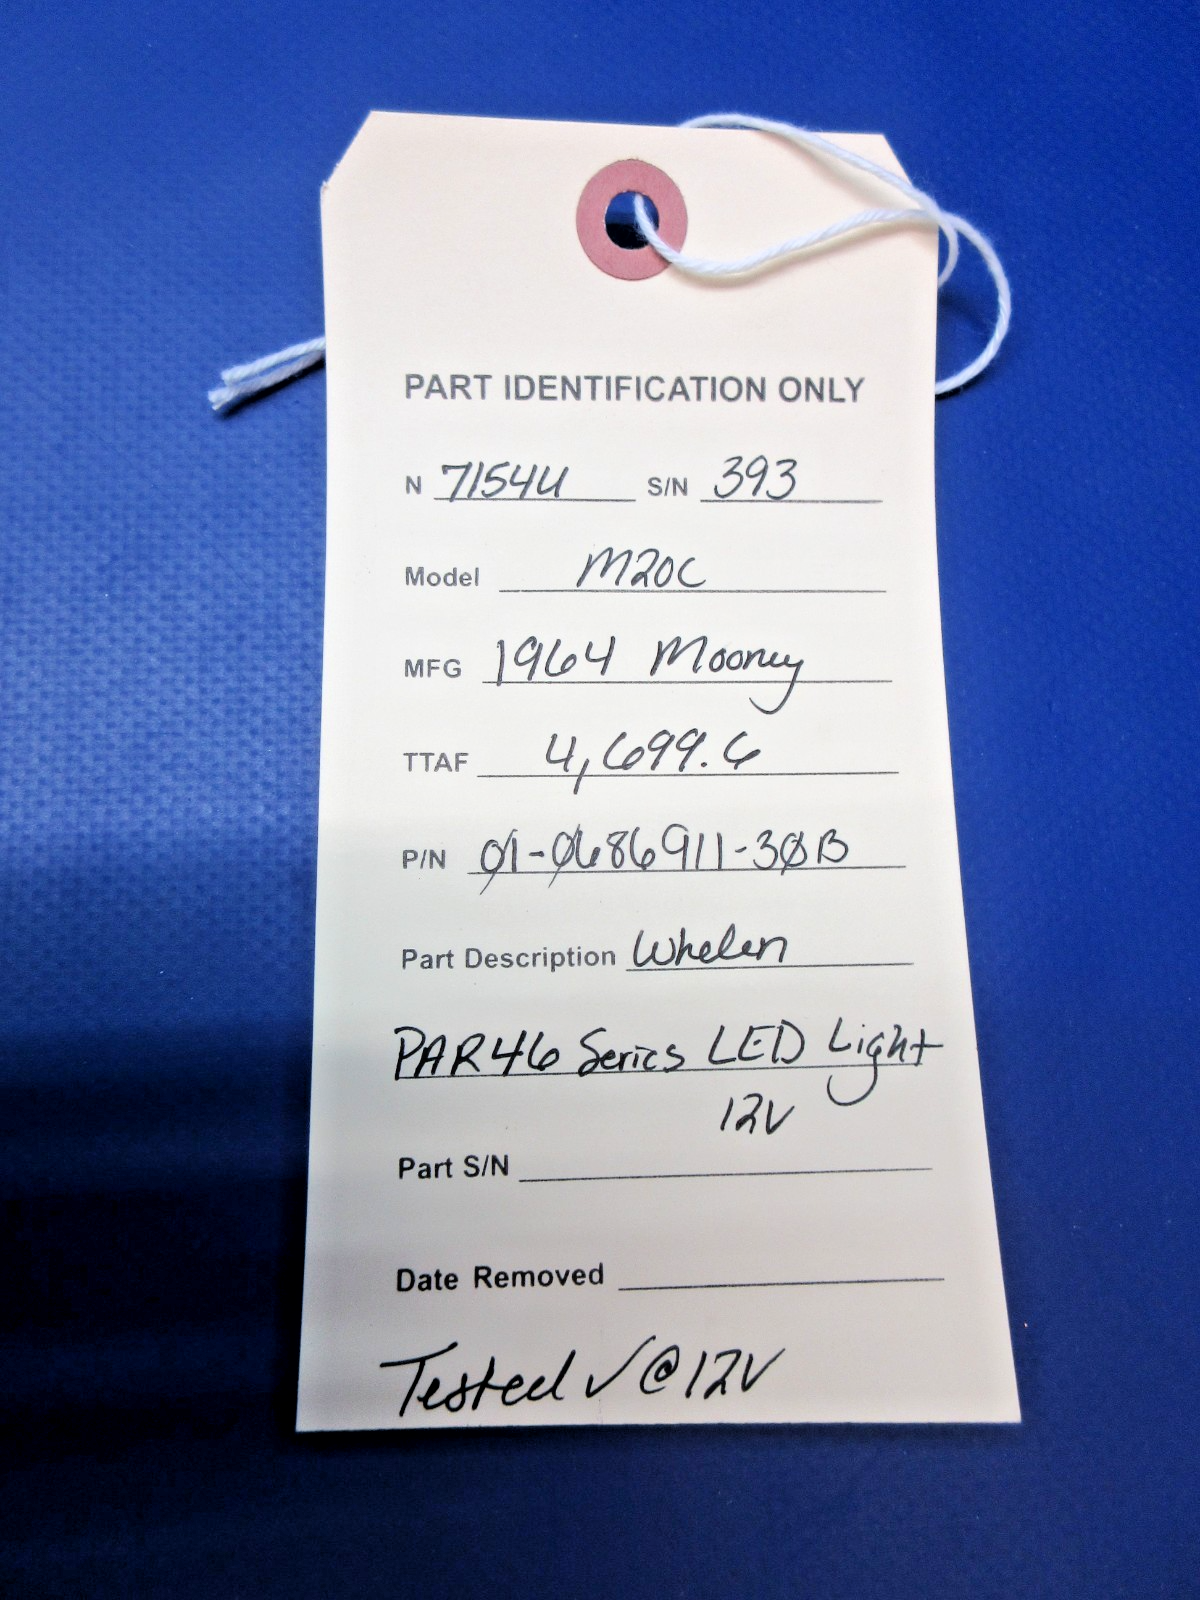 PART IDENTIFICATION ONLY
N 7154U S/N 393
Model M20C
MFG 1964 Mooney
TTAF 4,699.6
P/N 01-0686911-30B
Part Description Whelen
PAR46 Series LED Light
12V
Part S/N
Date Removed
Tested ✓ @ 12V